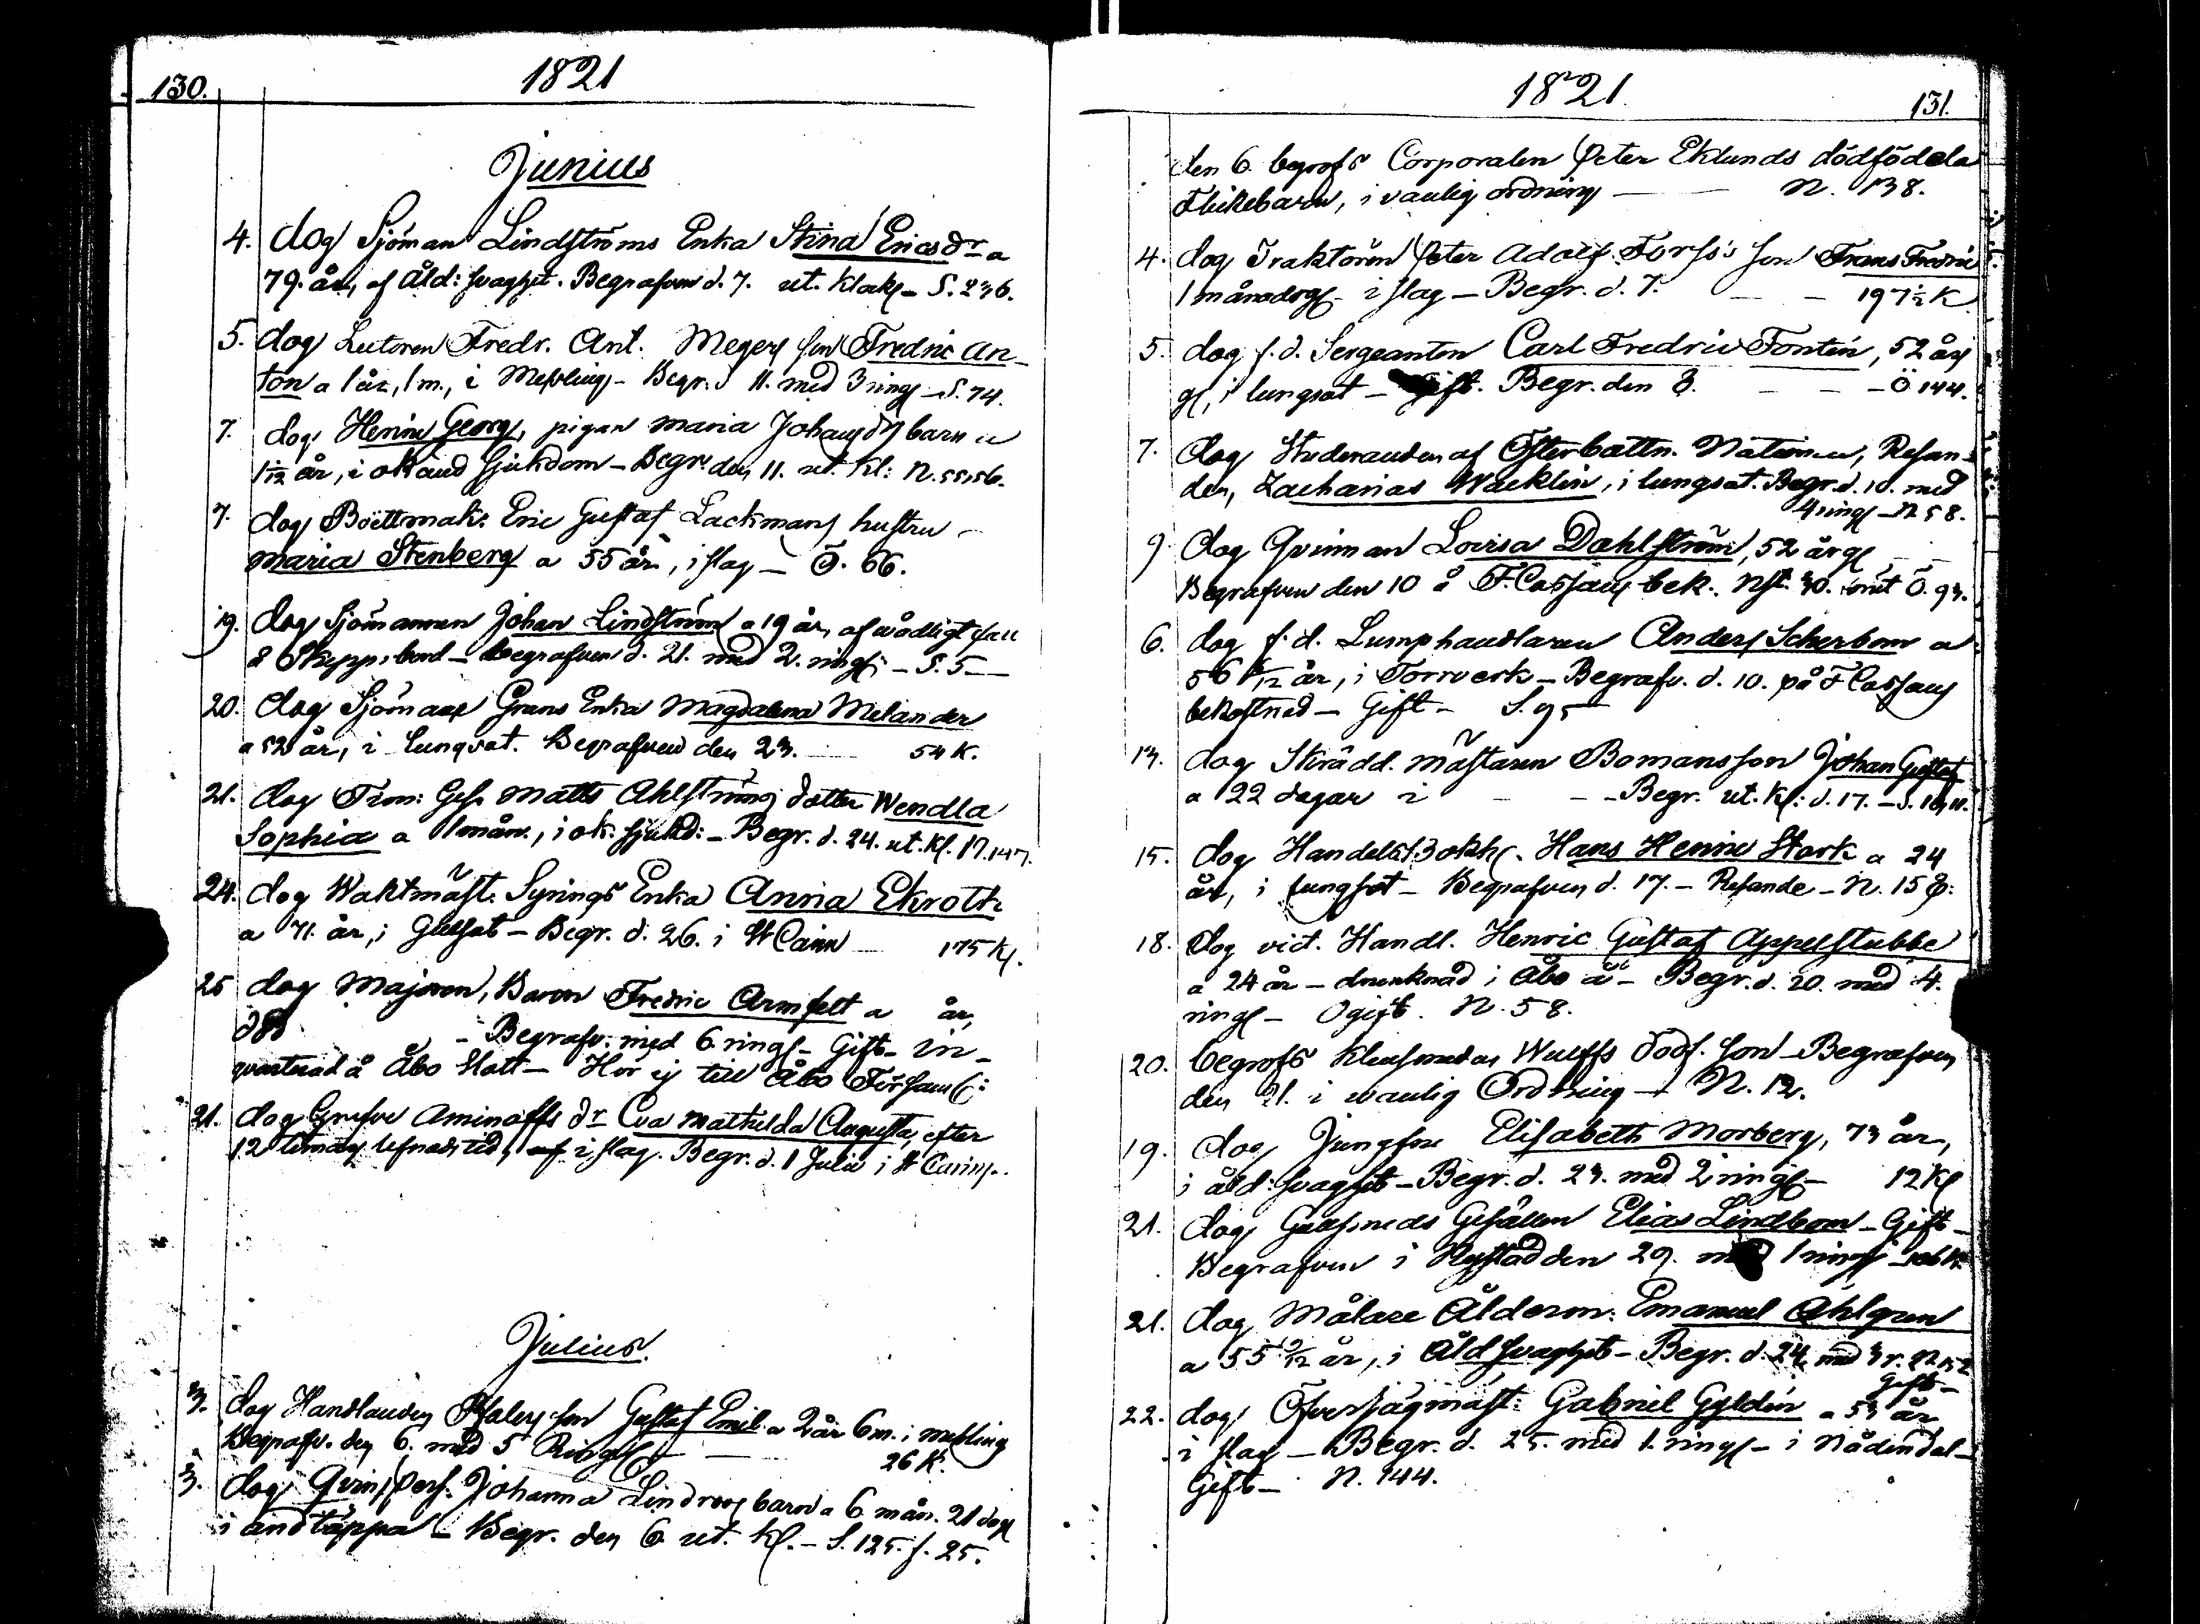 130.
1821
Junius
4. dog Sjöman Lindströms Enka Stina Ericsdr a
79. år, af Åld: svaghet. Begrafven d. 7. ut. Klock - S. 236.
5. dog Lectoren Fredr. Ant. Meyers son Fredric An-
ton a 1 år, 1 m., i Messling - Begr. d 11. med 3 ring - S. 74.
7. dog Henric Georg, pigan Maria Johansdrs barn a
1 1/12 år, i okänd sjukdom - Begr. den 11. ut. Kl: N. 55, 56.
7. dog Böttmak. Eric Gustaf Lackmans hustru -
Maria Stenberg a 55 år, i slag - Ö. 66.
19. dog Sjömannen Johan Lindström a 19 år, af vådligt fall
å Skepps bord - begrafven d. 21. med 2. ring - S. 5 -
20. dog Sjöman Grans Enka Magdalena Melander
a 52 år, i lungsot. Begrafven den 23. 54 K.
21. dog Tim: Ges. Matts Ahlströms dotter Wendla
Sophia a 1 mån., i ok. sjukd: - Begr. d. 24. ut. Kl. N. 147.
24. dog Waktmäst. Syrings Enka Anna Ekroth
a 71. år, i Gulsot - Begr. d. 26. i St Carin - 175 Kl.
25 dog Majoren, Baron Fredric Armfelt a år,
död - Begrafv. med 6 ring - Gift - in-
qvarterad å Åbo Slott - Hör ej till Åbo Församl:
21. dog Grefve Aminoffs dr Eva Mathilda Augusta, efter
12 timars lefnadstid, af i slag. Begr. d. 1 Julii i St Carins.
Julius.
3. dog Handlanden son Gustaf Emil a 2 år 6 m. i messling
Begrafv. den 6. med 5 Ring - 26 K.
3. dog Qvinspers. Johanna Lindroos barn a 6 mån. 21 dag
i andtäppa - Begr. den 6 ut. Kl. - S. 125. f. 25.
1821.
131.
den 6. begrofs Corporalen Peter Eklunds dödfödda
Flickebarn, i vanlig ordning - N. 138.
4. dog Traktören Peter Adolf Forss's son Frans Fredric
1 månad i slag - Begr. d. 7. - - 197½ K
5. dog f. d. Sergeanten Carl Fredric Fontin, 52 år
gl, i lungsot - Gift. Begr. den 8. - - Ö 144.
7. dog Studeranden af Österbottn. Nationen, Resan-
den, Zacharias Wacklin, i lungsot. Begr. d. 10. med
4 ring - N 58.
9 dog Qvinman Lovisa Dahlström, 52 år gl,
Begrafven den 10 å F. Cassans bek. Öst Ö. 93.
6. dog f. d. Lumphandlaren Anders Scherbom a
56 1/12 år, i Torrverk - Begrafv. d. 10. på F Cassans
bekostnad - Gift - S. 95
13. dog Skrädd. mästaren Bomans son Johan Gustaf
a 22 dagar i - - Begr. ut. Kl: d. 17. -
15. dog Handels Bokh. Hans Henric Stork a 24
år, i lungsot - Begrafven d. 17. - Resande - N. 158.
18. dog vict. Handl. Henric Gustaf Appelstubbe
a 24 år - drunknad i Åbo å - Begr. d. 20. med 4.
ring - Ogift. N. 58.
20. begrofs Klensmeden Wulffs dödf. son - Begrafven
den 21. i vanlig Ordning - N. 12.
19. dog Jungfru Elisabeth Morberg, 73 år,
i åld: svaghet - Begr. d. 23. med 2 ring - 12 Kl
21. dog Gulsmeds Gesällen Elias Lindbom - Gift -
Begrafven i Nystad den 29. med 1 ring -
21. dog Målare Ålderm. Emanuel Ahlgren
a 55 9/12 år, i Åld. svaghet - Begr. d. 24. med 3 r.
Gift -
22. dog Öfverjägmäst: Gabriel Gyldén a 53 år
i slag - Begr. d. 25. med 1. ring - i Nådendal -
Gift - N. 144.